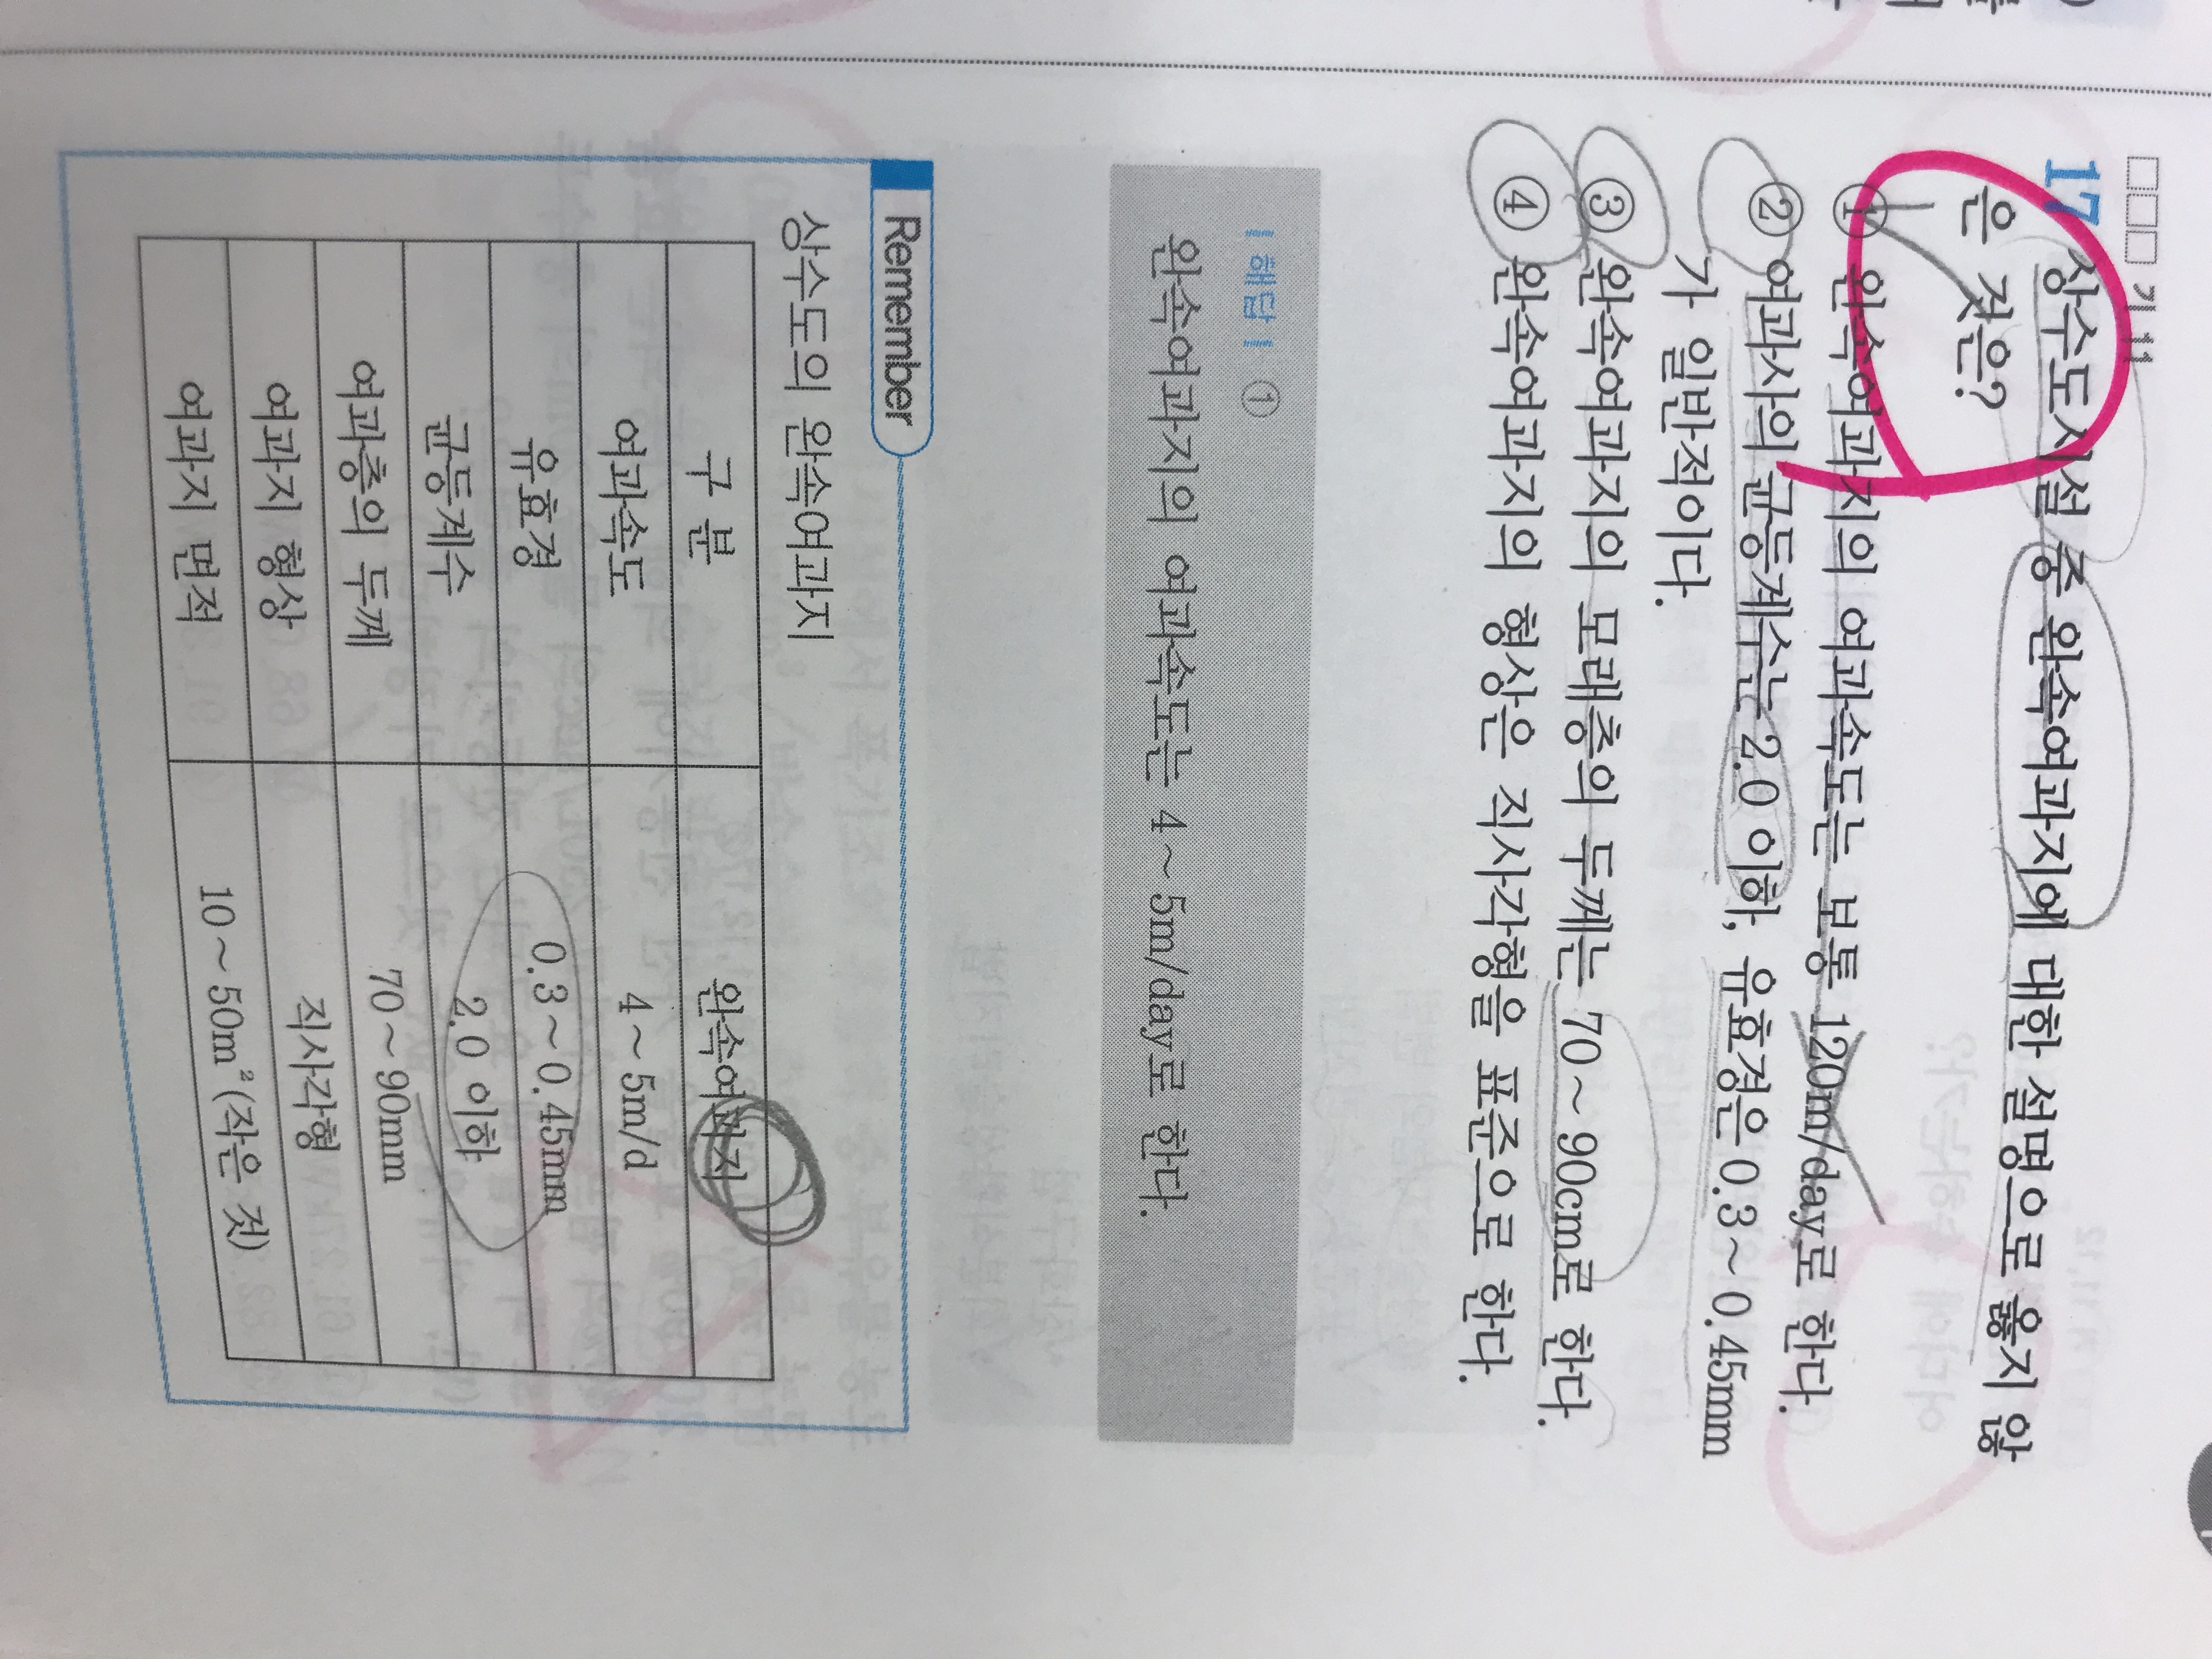 기 11
17 상수도시설 중 완속여과지에 대한 설명으로 옳지 않
은 것은?
① 완속여과지의 여과속도는 보통 120m/day로 한다.
② 여과사의 균등계수는 2.0 이하, 유효경은 0.3~0.45mm
가 일반적이다.
③ 완속여과지의 모래층의 두께는 70~90cm로 한다.
④ 완속여과지의 형상은 직사각형을 표준으로 한다.
해답 ①
완속여과지의 여과속도는 4~5m/day로 한다.
Remember
상수도의 완속여과지
구 분 완속여과지
여과속도 4~5m/d
유효경 0.3~0.45mm
균등계수 2.0 이하
여과층의 두께 70~90mm
여과지 형상 직사각형
여과지 면적 10~50m²(작은 것)